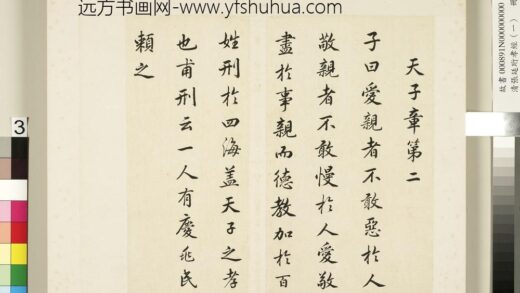 远方书画网-www.yfshuhua.com
天子章第二
子曰愛親者不敢惡於人
敬親者不敢慢於人愛敬
盡於事親而德教加於百
姓刑於四海盖天子之孝
也甫刑云一人有慶兆民
賴之
3
故書 000891N000000000
清張廷珩孝經（一）